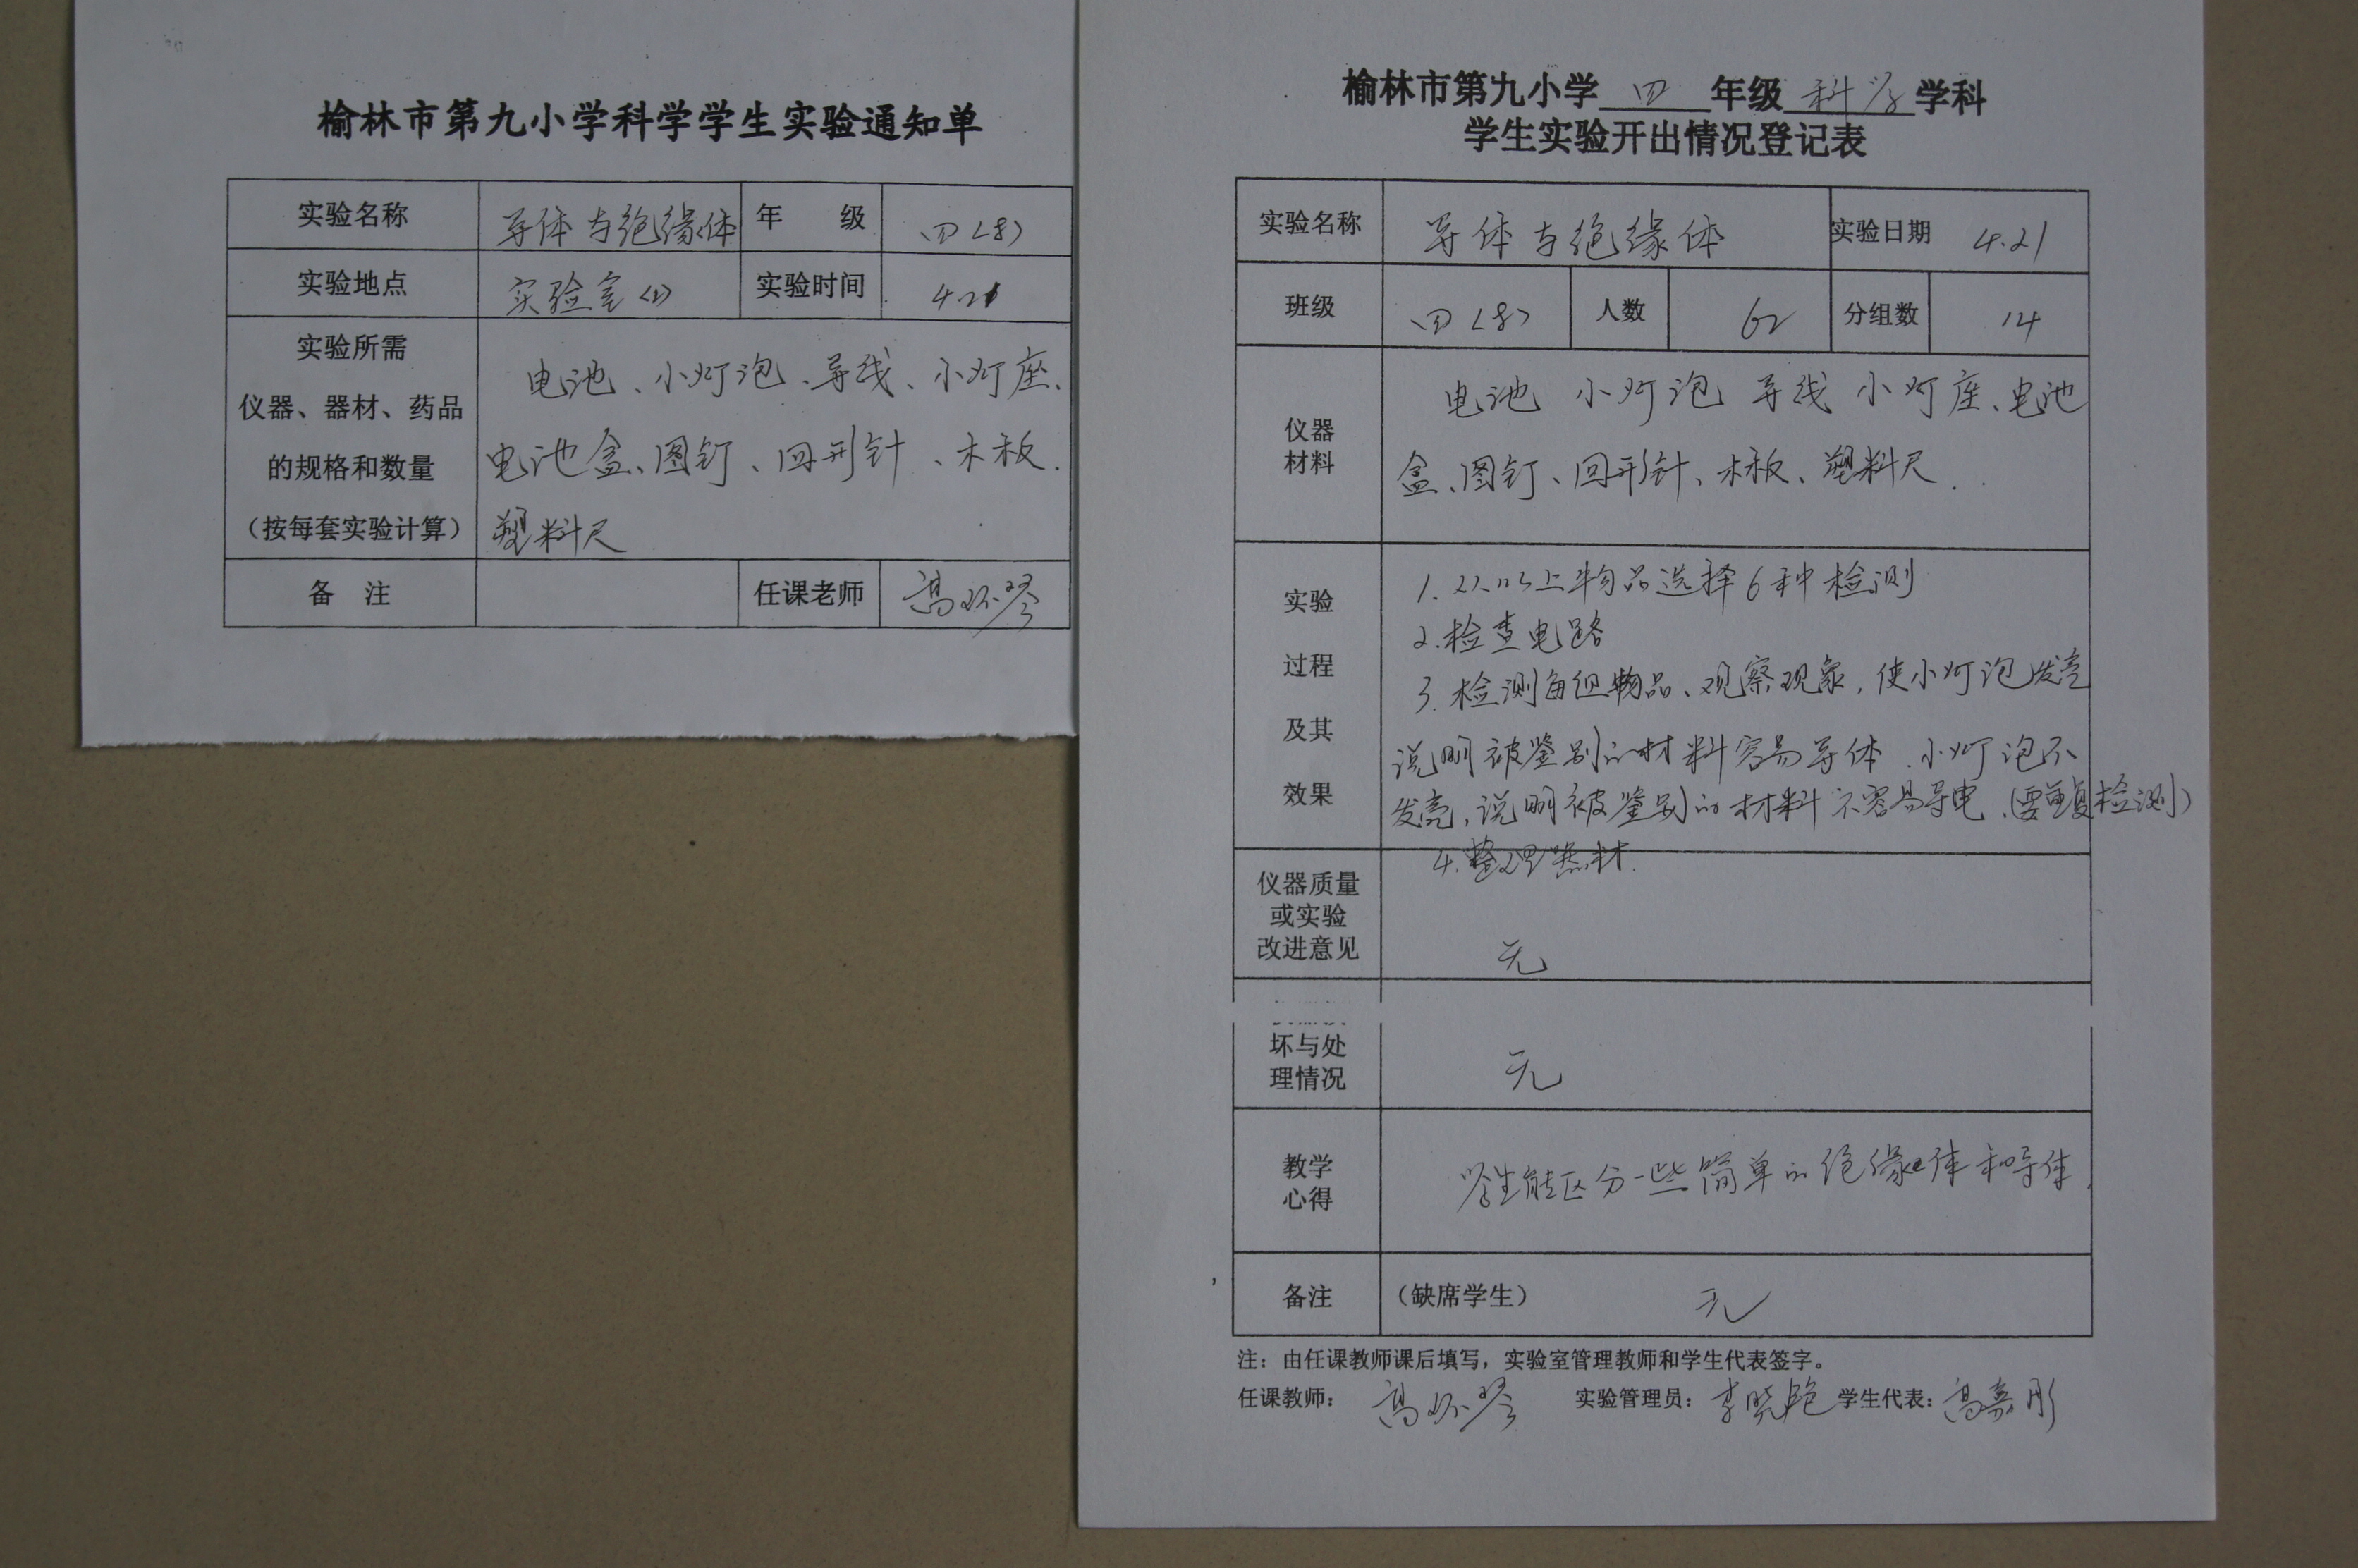 榆林市第九小学科学学生实验通知单
实验名称 导体与绝缘体 年 级 四(8)
实验地点 实验室(1) 实验时间 4.21
实验所需
仪器、器材、药品
的规格和数量
(按每套实验计算)
电池、小灯泡、导线、小灯座、
电池盒、图钉、回形针、木板、
塑料尺
备 注 任课老师 高环琴
榆林市第九小学 四 年级 科学 学科
学生实验开出情况登记表
实验名称 导体与绝缘体 实验日期 4.21
班级 四(8) 人数 62 分组数 14
仪器
材料
电池 小灯泡 导线 小灯座、电池
盒、图钉、回形针、木板、塑料尺.
实验
过程
及其
效果
1.从以上物品选择6种检测
2.检查电路
3.检测每组物品、观察现象,使小灯泡发亮
说明被鉴别的材料容易导体.小灯泡不
发亮,说明被鉴别的材料不容易导电.(要重复检测)
4.整理器材.
仪器质量
或实验
改进意见
无
坏与处
理情况
无
教学
心得
学生能区分一些简单的绝缘体和导体.
备注 (缺席学生) 无
注:由任课教师课后填写,实验室管理教师和学生代表签字。
任课教师: 高环琴 实验管理员: 李晓艳 学生代表: 高嘉彤